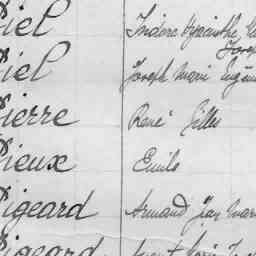 Piel Isidore Hyacinthe
Joseph
Piel Joseph Marie Eugène
Pierre René Gilles
Pieux Emile
Pigeard Armand Jean Marie
Pigeard